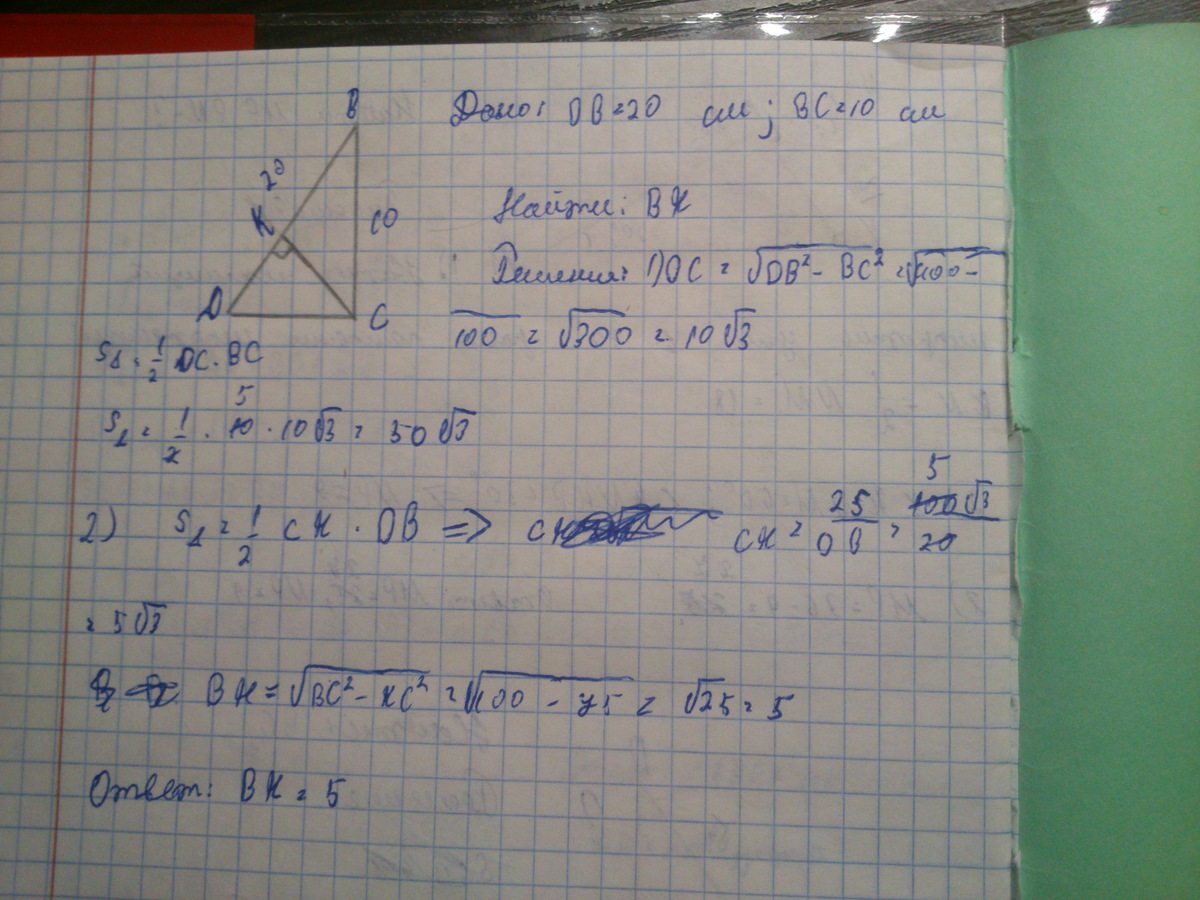 B
Дано: DB = 20 см ; BC = 10 см
20
K
10
Найти: BK
D
C
Решения: 1) DC = √DB² - BC² = √400 -
100 = √300 = 10√3
S△ = 1/2 DC · BC
5
S△ = 1/2 · 10 · 10√3 = 50√3
2) S△ = 1/2 CK · DB => CK CK = 2S/DB = 100√3/20
5
= 5√3
BK = √BC² - KC² = √100 - 75 = √25 = 5
Ответ: BK = 5